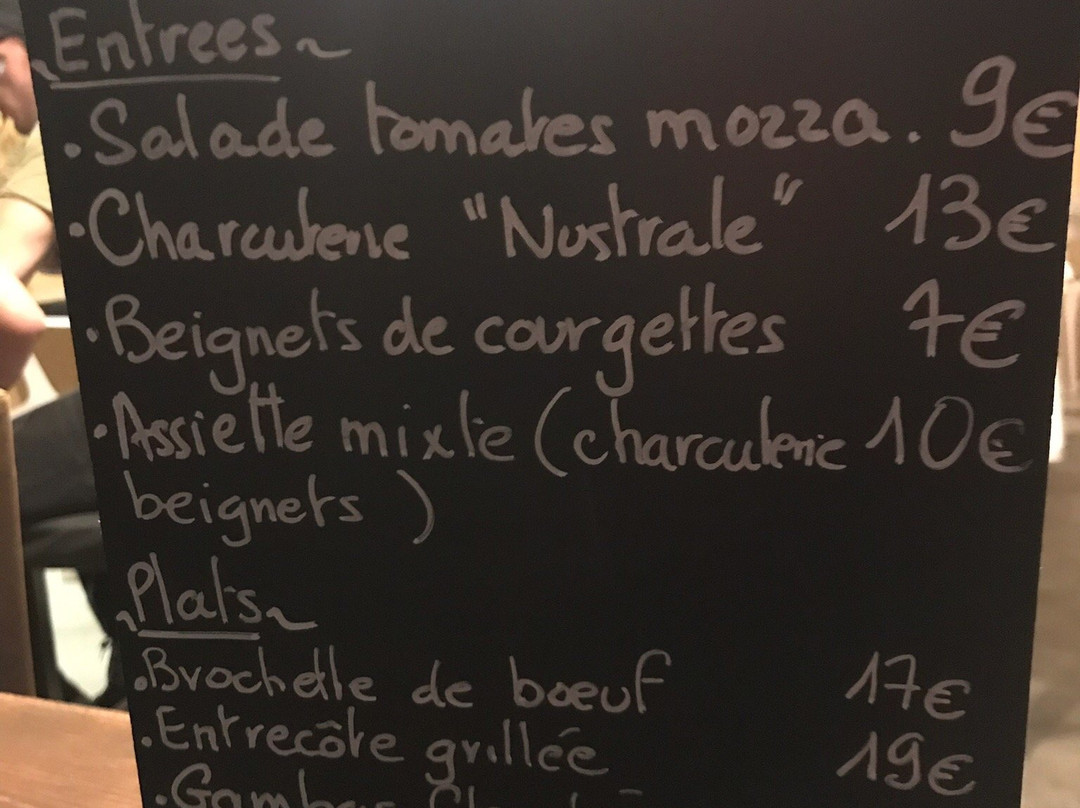 ~Entrees~
. Salade tomates mozza. 9€
. Charcuterie "Nustrale" 13€
. Beignets de courgettes 7€
. Assiette mixte (charcuterie 10€
beignets )
~Plats~
. Brochette de bœuf 17€
. Entrecôte grillée 19€
. Gambas